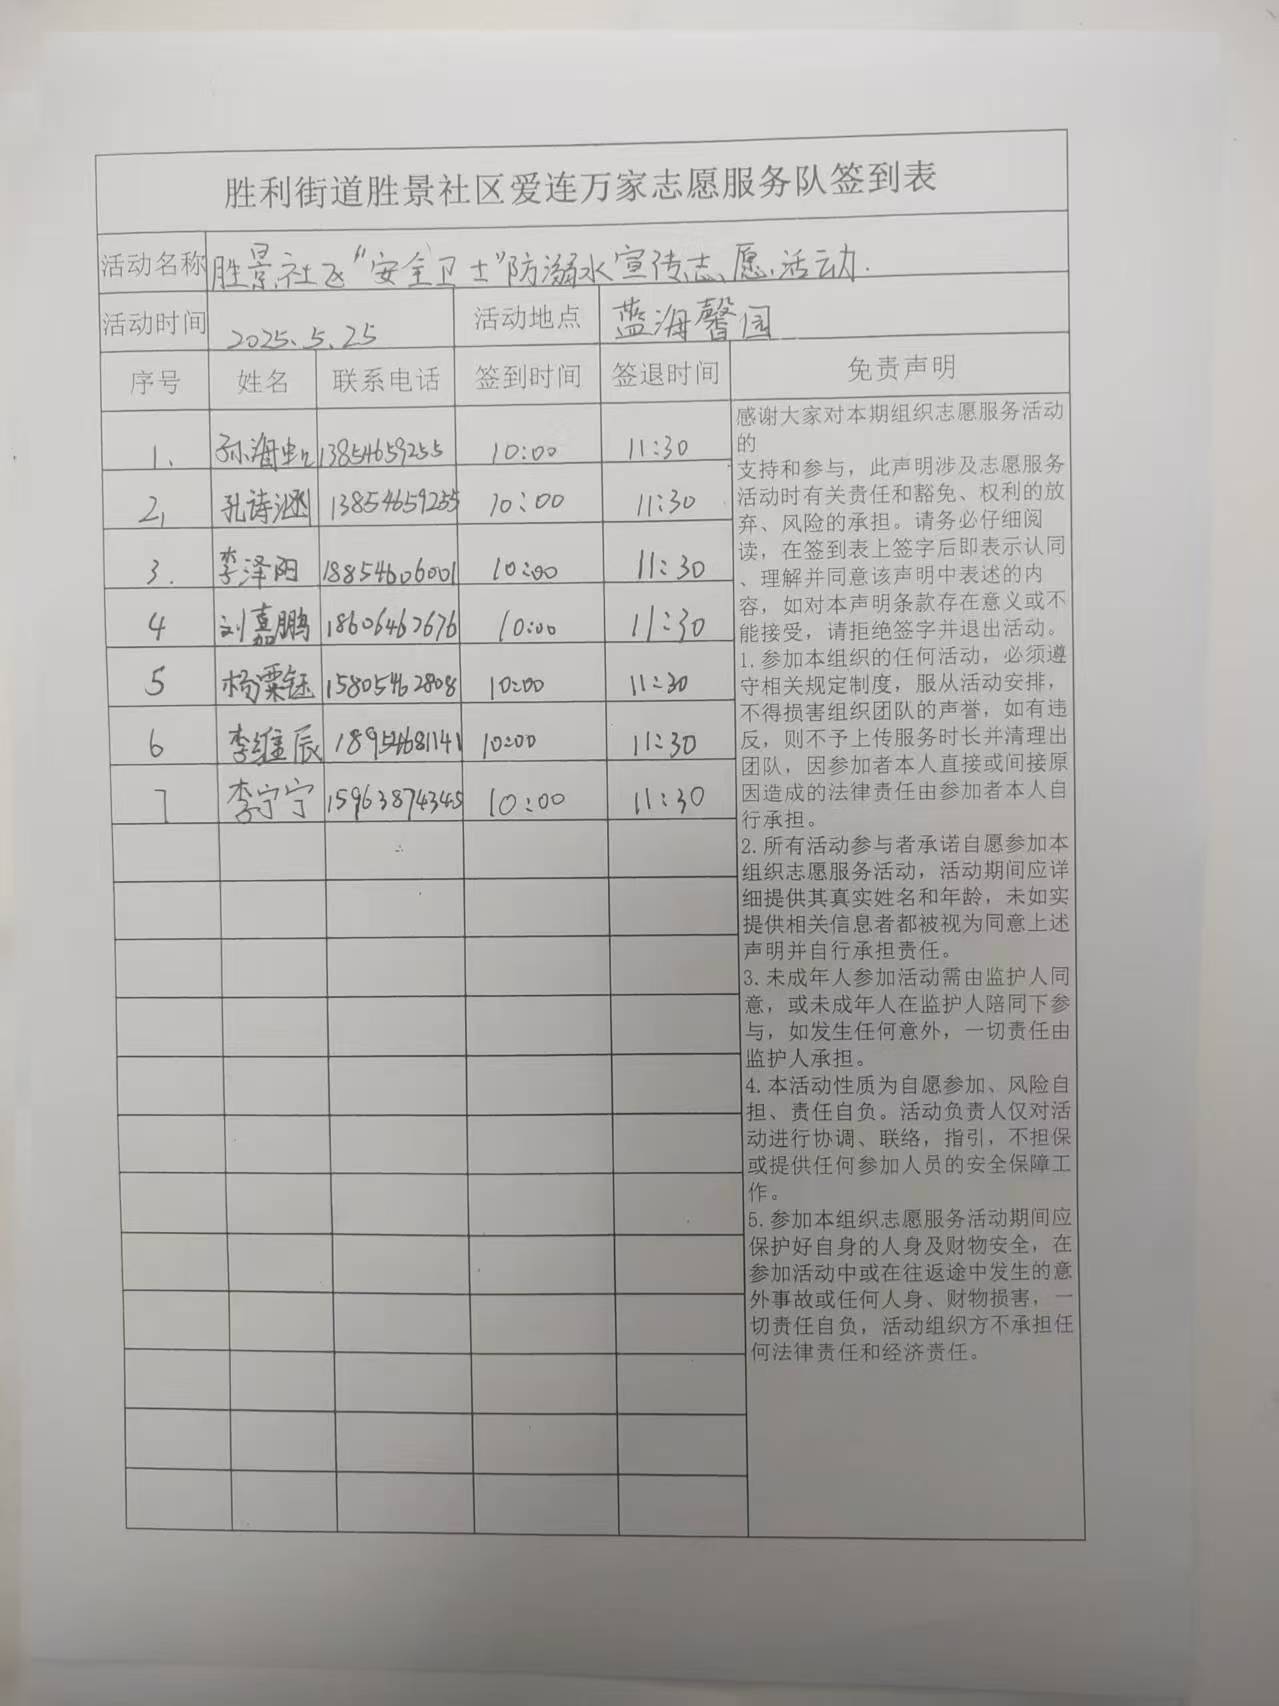 胜利街道胜景社区爱连万家志愿服务队签到表
活动名称 胜景社区“安全卫士”防溺水宣传志愿活动.
活动时间 2025.5.25 活动地点 蓝海馨园
序号 姓名 联系电话 签到时间 签退时间 免责声明
1. 孙海虹 13854659255 10:00 11:30
2, 孔诗涵 13854659255 10:00 11:30
3. 李泽阳 18854606001 10:00 11:30
4 刘嘉鹏 18606462676 10:00 11:30
5 杨粟钰 15805462808 10:00 11:30
6 李维辰 18954681141 10:00 11:30
7 李宁宁 15963874345 10:00 11:30
感谢大家对本期组织志愿服务活动
的
支持和参与，此声明涉及志愿服务
活动时有关责任和豁免、权利的放
弃、风险的承担。请务必仔细阅
读，在签到表上签字后即表示认同
、理解并同意该声明中表述的内
容，如对本声明条款存在意义或不
能接受，请拒绝签字并退出活动。
1.参加本组织的任何活动，必须遵
守相关规定制度，服从活动安排，
不得损害组织团队的声誉，如有违
反，则不予上传服务时长并清理出
团队，因参加者本人直接或间接原
因造成的法律责任由参加者本人自
行承担。
2.所有活动参与者承诺自愿参加本
组织志愿服务活动，活动期间应详
细提供其真实姓名和年龄，未如实
提供相关信息者都被视为同意上述
声明并自行承担责任。
3.未成年人参加活动需由监护人同
意，或未成年人在监护人陪同下参
与，如发生任何意外，一切责任由
监护人承担。
4.本活动性质为自愿参加、风险自
担、责任自负。活动负责人仅对活
动进行协调、联络，指引，不担保
或提供任何参加人员的安全保障工
作。
5.参加本组织志愿服务活动期间应
保护好自身的人身及财物安全，在
参加活动中或在往返途中发生的意
外事故或任何人身、财物损害，一
切责任自负，活动组织方不承担任
何法律责任和经济责任。